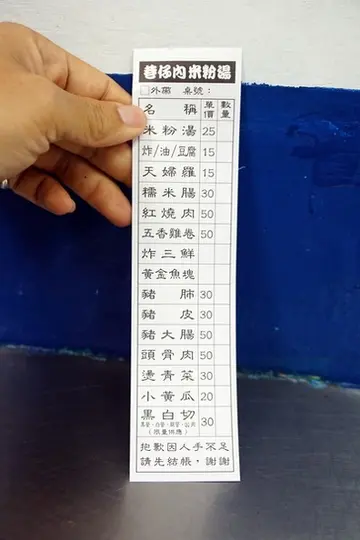 巷仔內米粉湯
□外帶 桌號：
名稱 單價 數量
米粉湯 25
炸/油/豆腐 15
天婦羅 15
糯米腸 30
紅燒肉 50
五香雞卷 50
炸三鮮
黃金魚塊
豬肺 30
豬皮 30
豬大腸 50
頭骨肉 50
燙青菜 30
小黃瓜 20
黑白切 30
(限量供應)
抱歉因人手不足
請先結帳，謝謝